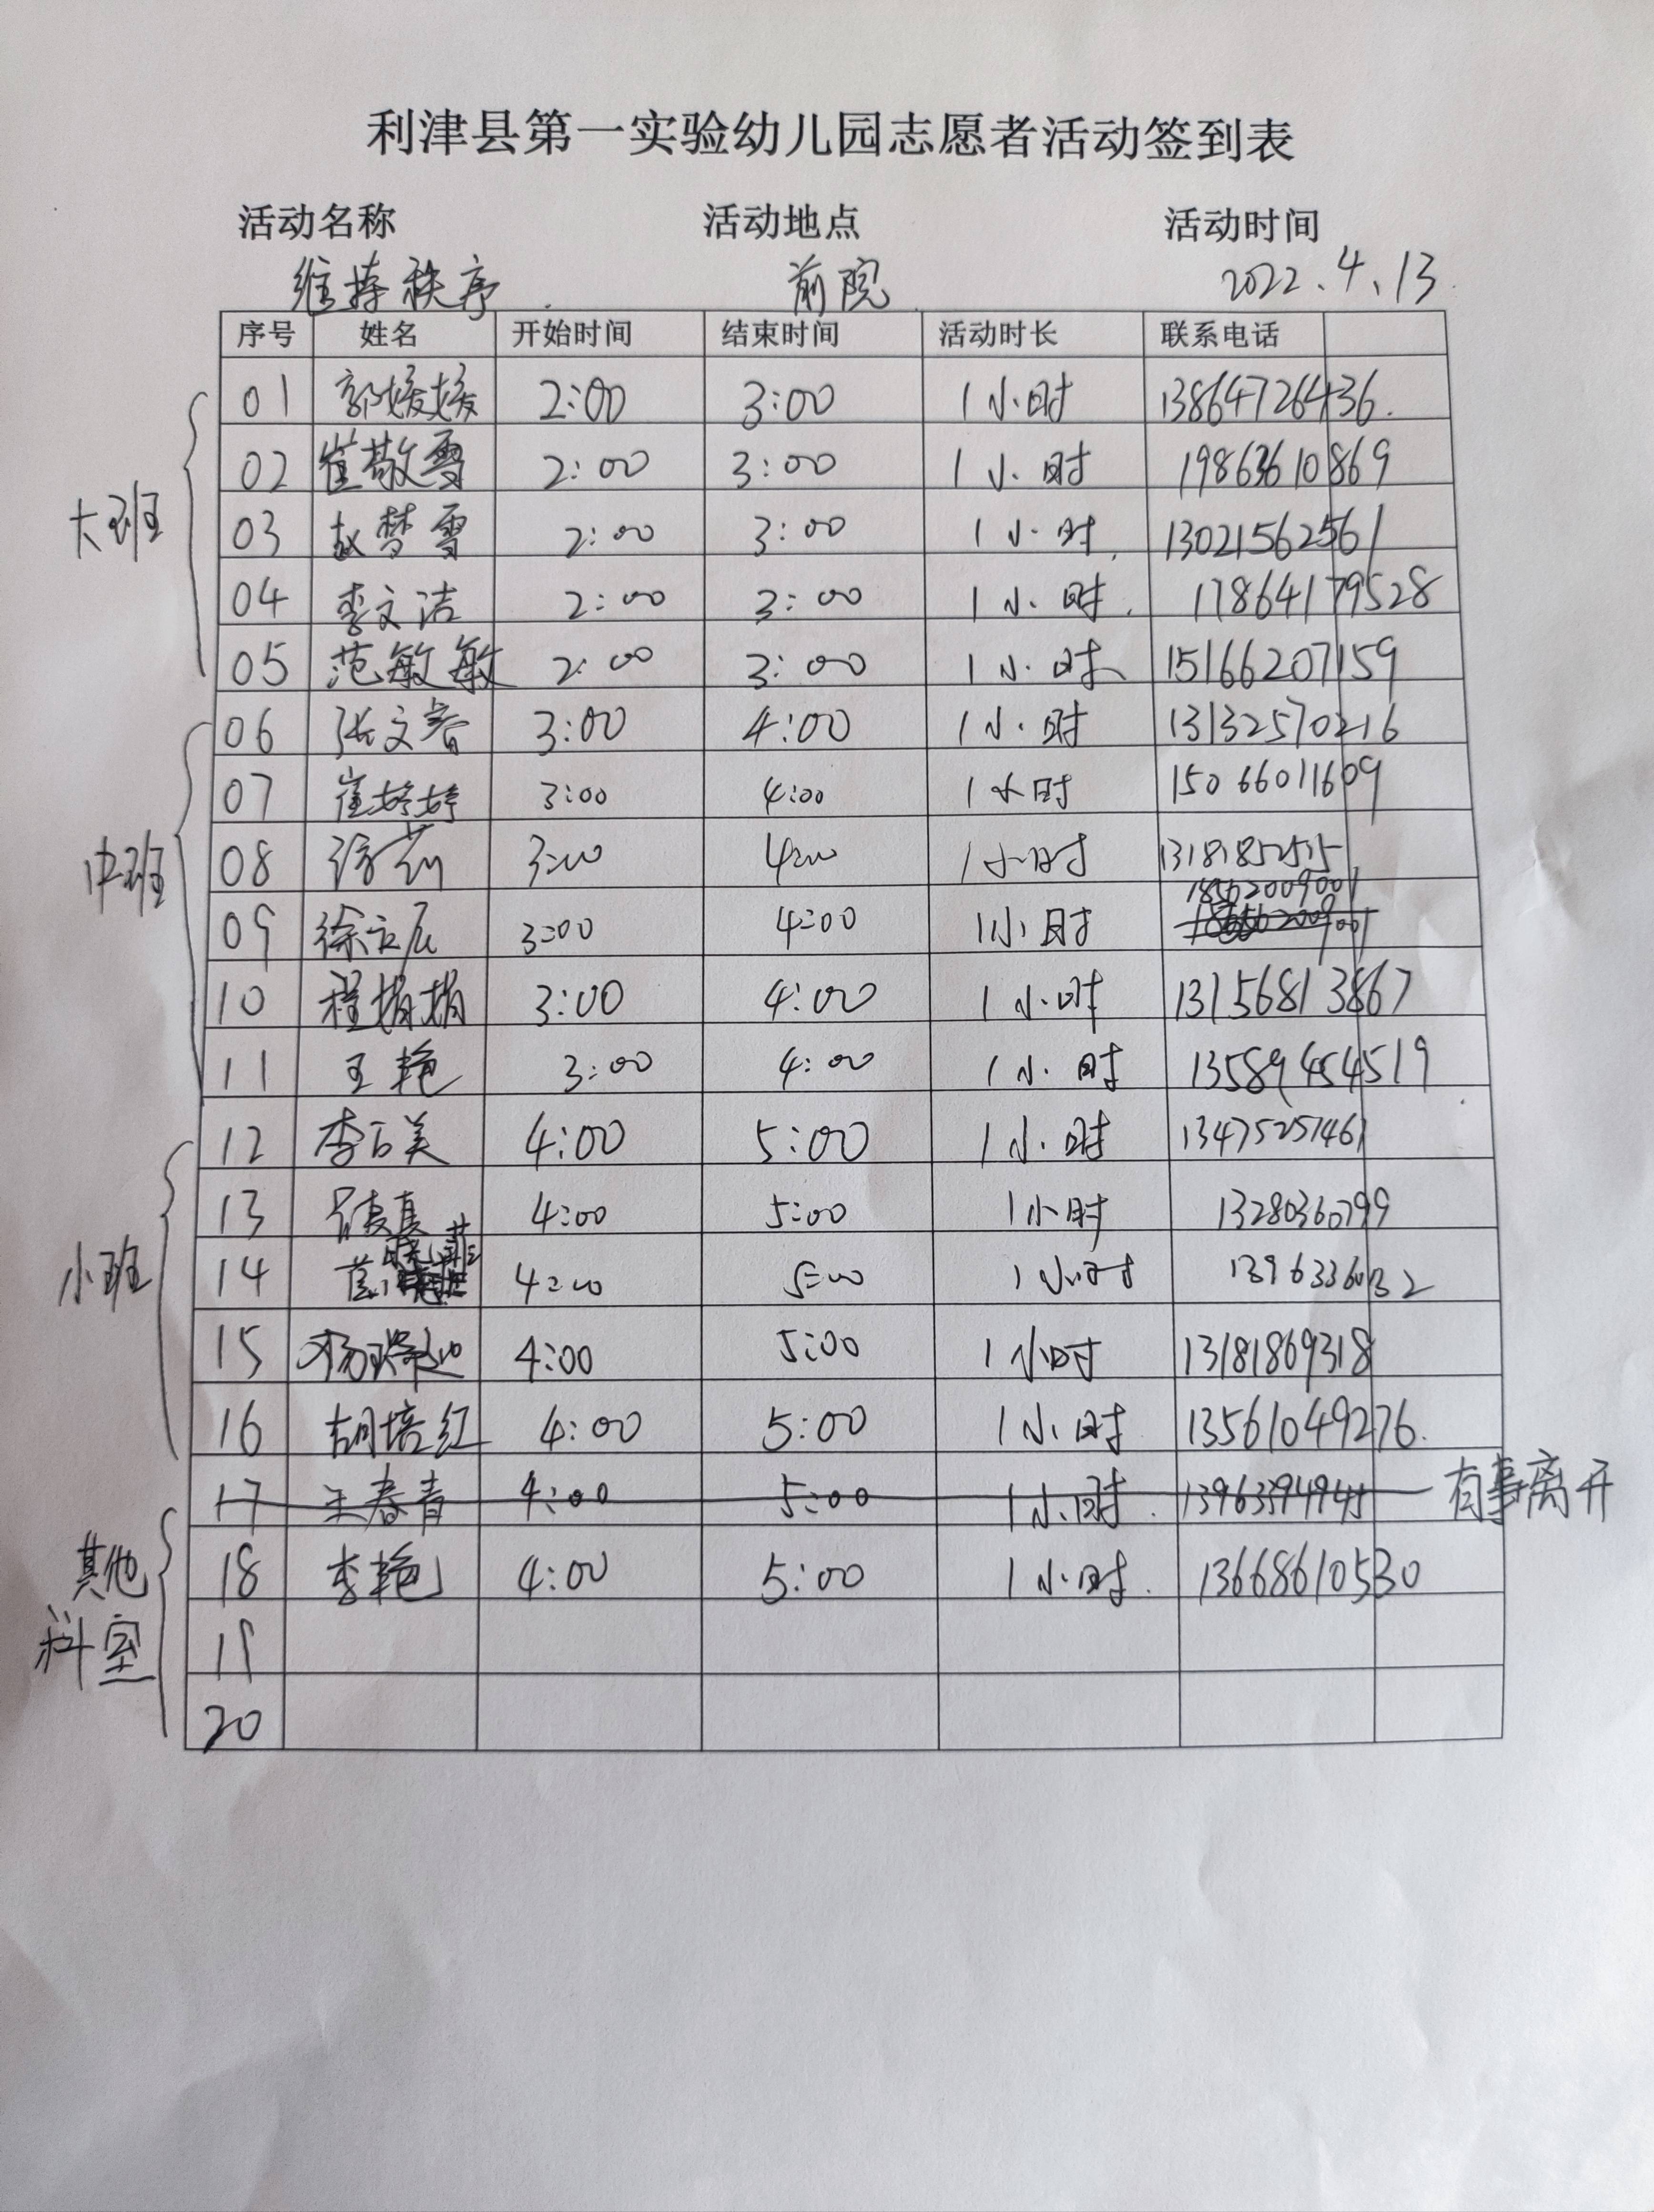 利津县第一实验幼儿园志愿者活动签到表
活动名称 活动地点 活动时间
维持秩序 前院 2022.4.13
序号 姓名 开始时间 结束时间 活动时长 联系电话
大班
01 郭媛媛 2:00 3:00 1小时 13864726436
02 崔敬雪 2:00 3:00 1小时 19863610869
03 赵梦雪 2:00 3:00 1小时 13021562561
04 李文洁 2:00 3:00 1小时 17864179528
05 范敏敏 2:00 3:00 1小时 15166207159
中班
06 张文春 3:00 4:00 1小时 13132570216
07 崔婷婷 3:00 4:00 1小时 15066011609
08 徐莉 3:00 4:00 1小时 13181852515
09 徐 3:00 4:00 1小时 18562009001
10 程娟娟 3:00 4:00 1小时 13156813867
11 王艳 3:00 4:00 1小时 13589454519
小班
12 李 美 4:00 5:00 1小时 13475251461
13 吕夏夏 4:00 5:00 1小时 13280360799
14 4:00 5:00 1小时 13963360132
15 杨 4:00 5:00 1小时 13181869318
16 胡培红 4:00 5:00 1小时 13561049276
其他
科室
17 王春青 4:00 5:00 1小时 13963394945 有事离开
18 李艳 4:00 5:00 1小时 13668610530
19
20